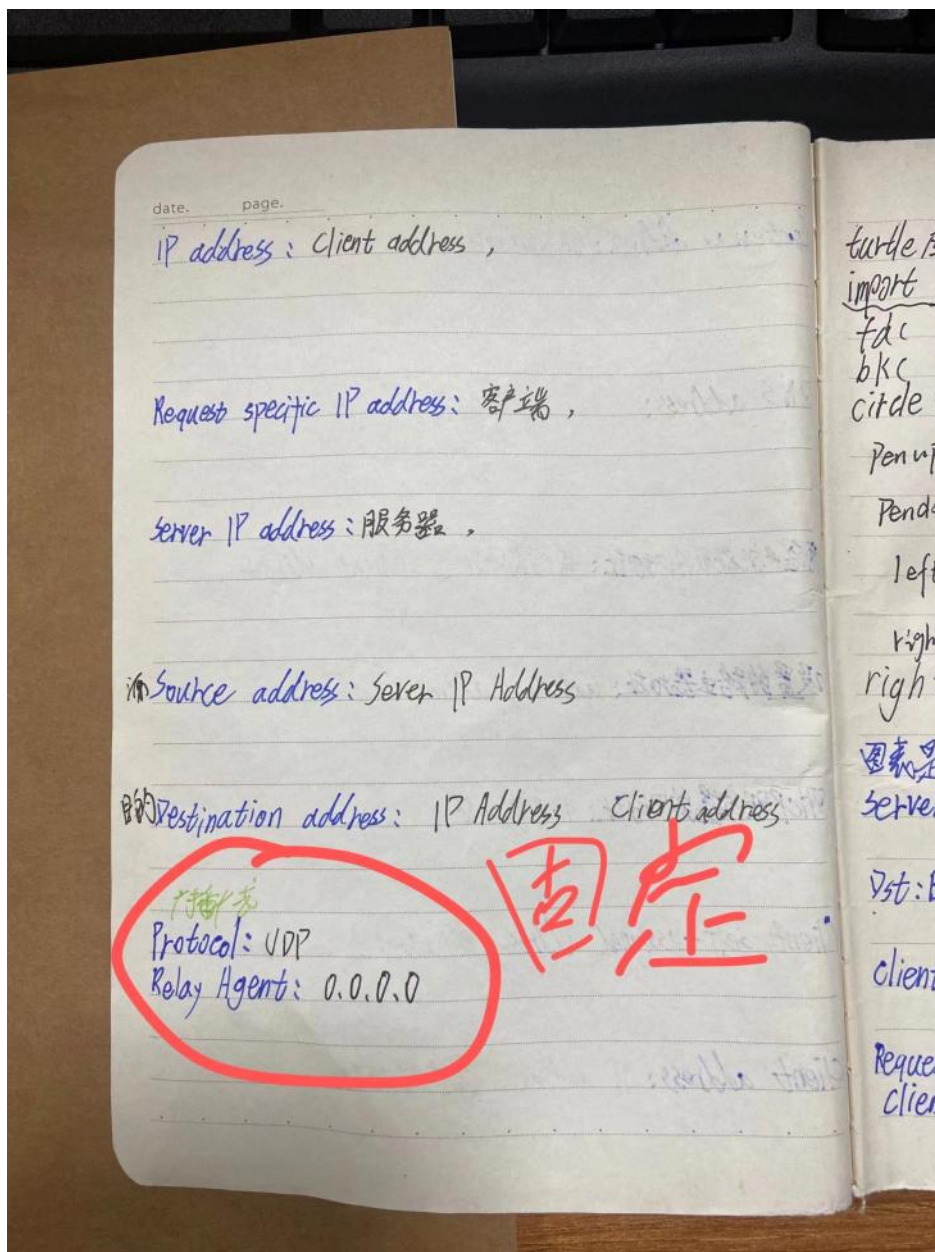 date. page.
IP address: Client address,
Request specific IP address: 客户端,
Server IP address: 服务器,
源 Source address: Sever IP Address
目的 Destination address: IP Address Client address
固定
Protocol: UDP
Relay Agent: 0.0.0.0
turtle
import
fdc
bkc
circle
penup
left
right
图表是
server
Dst:
client